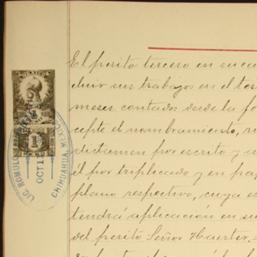 El perito tercero en su ca
duir sus trabajos en el ter
meses contados desde la fe
cepte el nombramiento,
dictamen por escrito y
él por triplicado y en pap
plano respectivo, cuya es
tendrá aplicación en su
del perito Señor
LIC. ROMULO
CHIHUAHUA, MEXICO
OCT 1
1